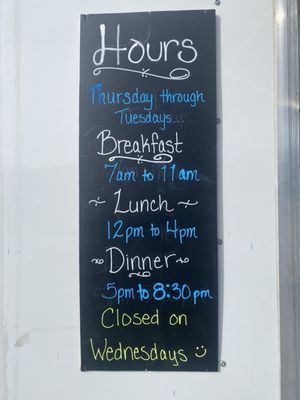 Hours
Thursday through
Tuesdays....
Breakfast
7am to 11am
~ Lunch ~
12pm to 4pm
~Dinner~
5pm to 8:30pm
Closed on
Wednesdays